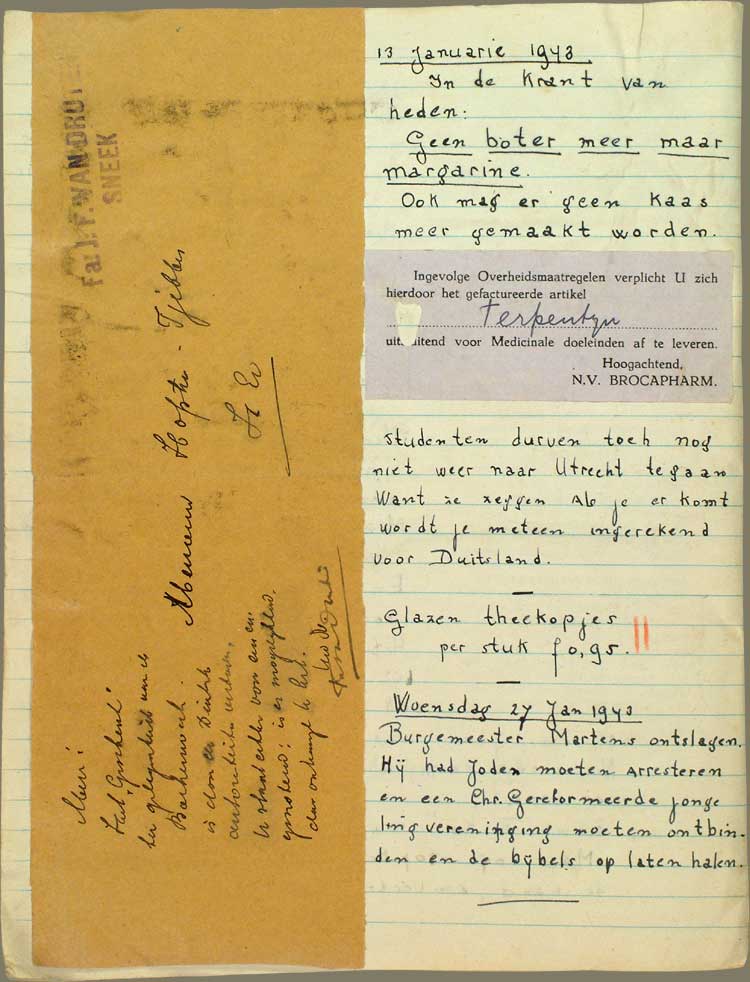 Fa. J. F. VAN DRUTEN
SNEEK
Mevrouw Hopste - Tjibbes
Mevr!
Het "Geschenk"
ter gelegenheid van de
is door de Duitsche
autoriteiten verboden.
U staat echter voor een en
der ontvangt U het.
13 Januarie 1943.
In de Krant van
heden:
Geen boter meer maar
margarine.
Ook mag er geen Kaas
meer gemaakt worden.
Ingevolge Overheidsmaatregelen verplicht U zich
hierdoor het gefactureerde artikel
Terpentyn
uitsluitend voor Medicinale doeleinden af te leveren.
Hoogachtend,
N.V. BROCAPHARM.
Studenten durven toch nog
niet weer naar Utrecht te gaan
Want ze zeggen Als je er komt
wordt je meteen ingerekend
voor Duitsland.
Glazen theekopjes
per stuk f 0,95.
Woensdag 27 Jan 1943
Burgemeester Martens ontslagen.
Hij had Joden moeten arresteren
en een Chr. Gereformeerde jonge
lingvereniging moeten ontbin-
den en de bijbels op laten halen.